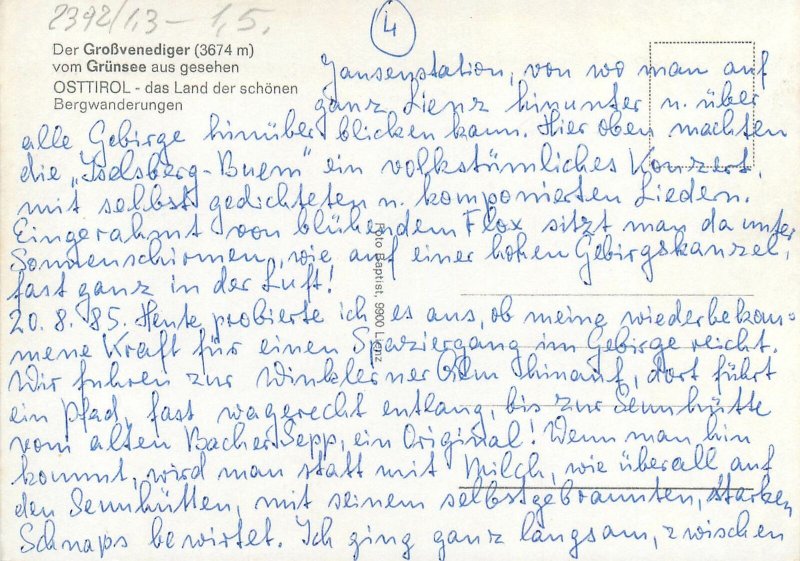 2392/1,3 - 1,5.
4
Der Großvenediger (3674 m)
vom Grünsee aus gesehen
OSTTIROL - das Land der schönen
Bergwanderungen
Foto Baptist, 9900 Lienz
Jausenstation, von wo man auf
ganz Lienz hinunter u. über
alle Gebirge hinüber blicken kann. Hier oben machten
die „Iselsberg-Buem" ein volkstümliches Konzert,
mit selbst gedichteten u. komponierten Liedern.
Eingerahmt von blühendem Flox sitzt man da unter
Sonnenschirmen, wie auf einer hohen Gebirgskanzel,
fast ganz in der Luft!
20. 8. 85. Heute probierte ich es aus, ob meine wiederbekom-
mene Kraft für einen Spaziergang im Gebirge reicht.
Wir fuhren zur Winklerner Alm hinauf, dort führt
ein Pfad, fast wagerecht entlang, bis zur Sennhütte
vom alten Bacher Sepp, ein Original! Wenn man hin
kommt, wird man statt mit Milch, wie überall auf
den Sennhütten, mit seinem selbstgebrannten, starken
Schnaps bewirtet. Ich ging ganz langsam, zwischen